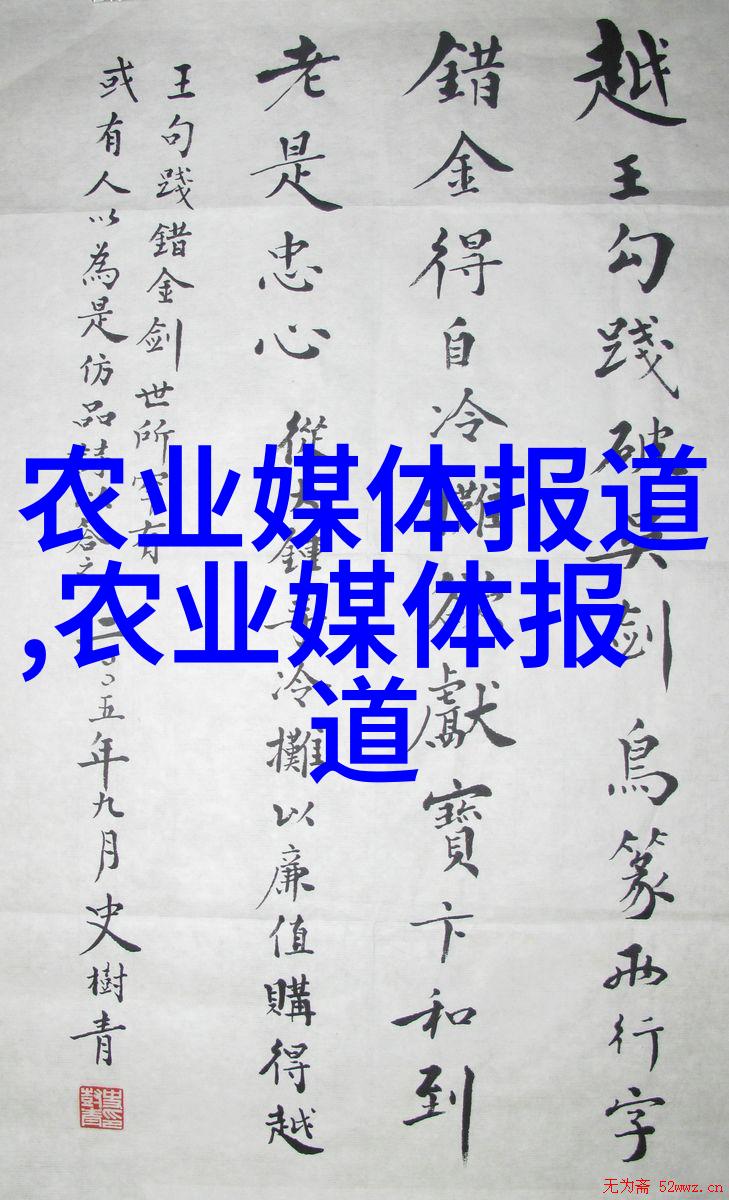 越王勾踐破吴剑鳥篆兩行字
錯金得自冷攤獻寶卞和到
老是忠心
從大鐘寺冷攤以廉值購得越
王句踐錯金剑世所罕有
或有人以為是仿品詩以答之二〇〇五年九月史樹青
农业媒体报道
,农业媒体报
道
无为斋 52wwz.cn